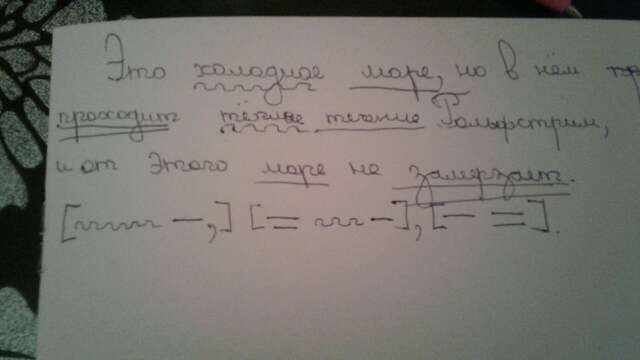 Это холодное море, но в нём
проходит тёплое течение Гольфстрим,
и от этого море не замерзает.
[~~~~ —,] [= ~~~ —], [— =].